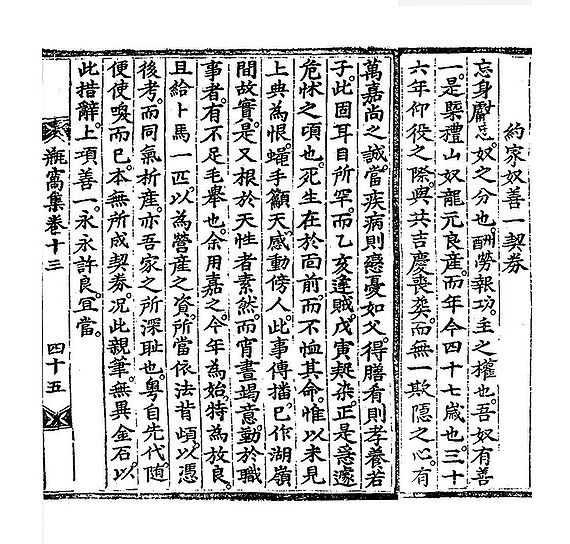 約家奴善一契券
忘身奴之分也。酬勞報功。主之權也。吾奴有善
一。是槩禮山奴龍元良産。而年今四十七歲也。三十
六年仰役之際。與共吉慶喪葬。而無一欺隱之心。有
萬嘉尚之誠。當疾病則戀憂如父。得膳肴則孝養若
子。此固耳目所罕。而乙亥逢賊。戊寅染。正是急遽
危怵之頃也。死生在於面前。而不恤其命。惟以未見
上典為恨。蠅手籲天。感動傍人。此事傳播。已作湖嶺
間故實。是又根於天性者素然。而宵晝竭意。勤於職
事者。有不足毛舉也。余用嘉之。今年為始。特為放良。
且給卜馬一匹。以為營産之資。所當依法背頉。以憑
後考。而同氣析産。亦吾家之所深耻也。粤自先代。隨
便使喚而已。本無所成契券。況此親筆。無異金石。以
此措辭。上項善一。永永許良。冝當。
瓶窩集卷十三
四十五